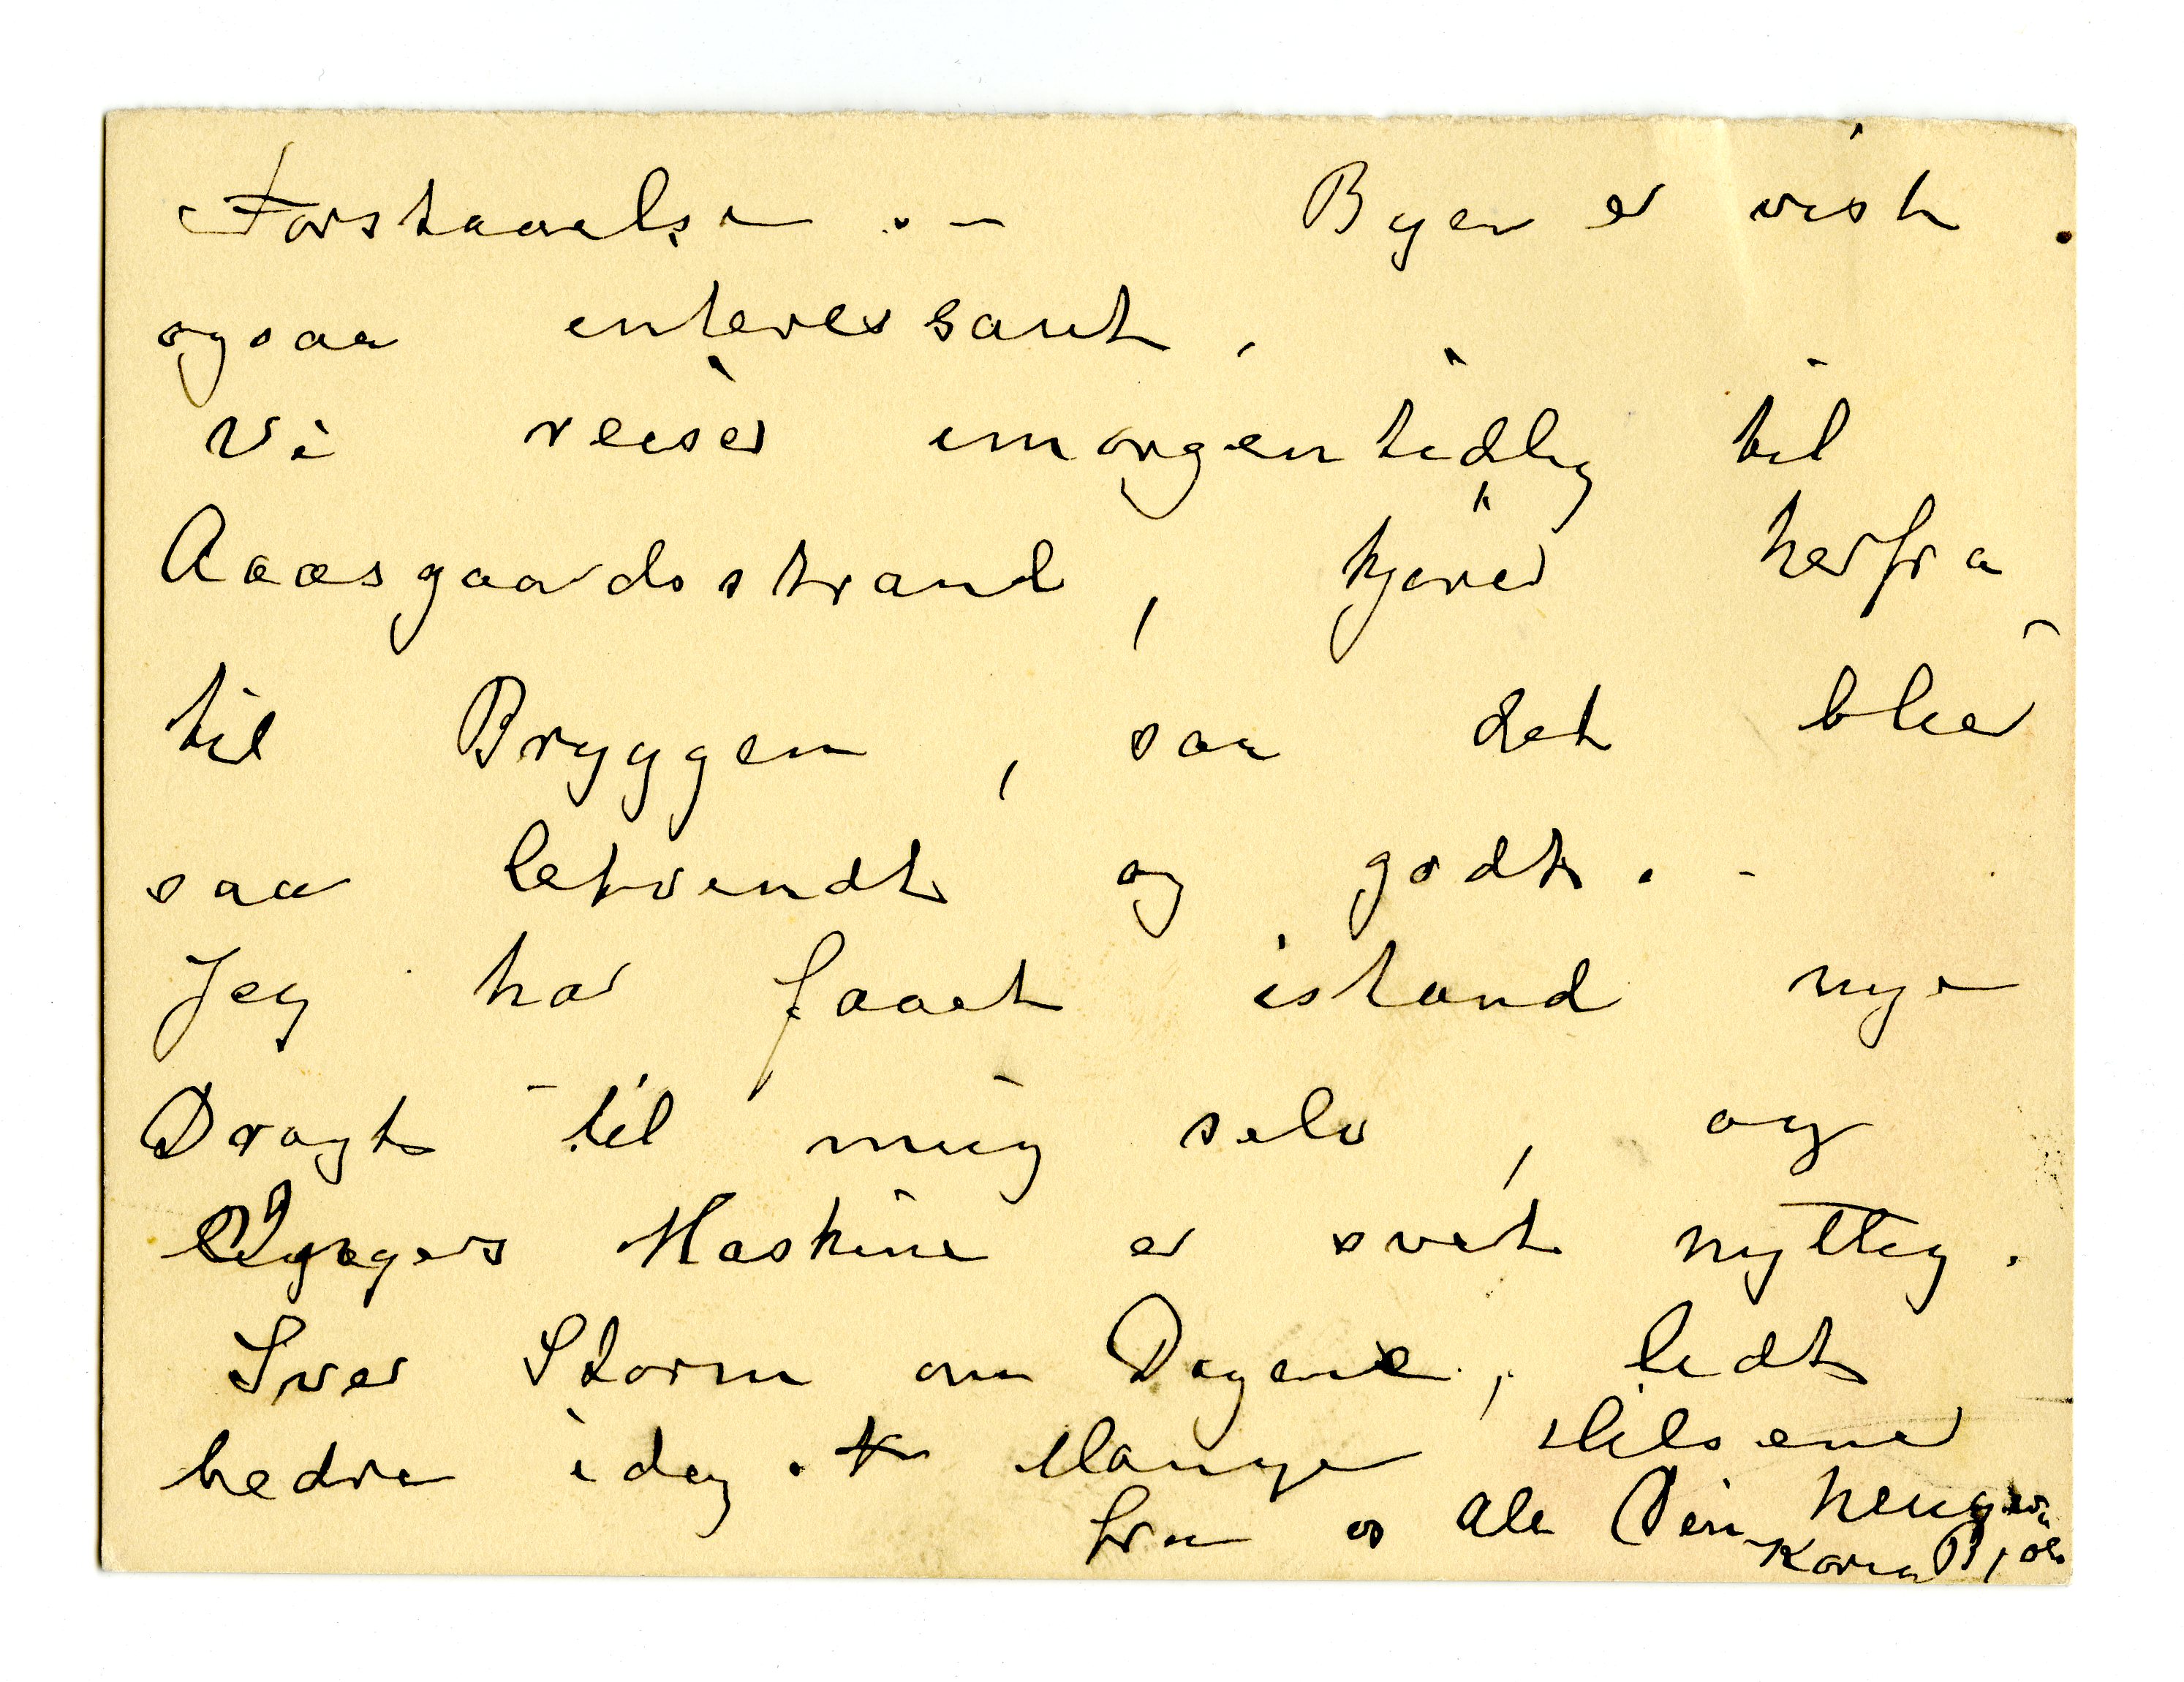 Forstaaelse. - Byen er vist
ogsaa interessant,
Vi reiser imorgentidlig til
Aaasgaardsstrand, kjører herfra
til Bryggen, saa det blir
saa letvendt og godt. -
Jeg har faaet istand nye
Dragt til mig selv, og
Maskine er svært nyttig.
Svær Storm om Dagene, lidt
bedre idag. Mange Hilsener
fra os alle Din hengivne
Karen